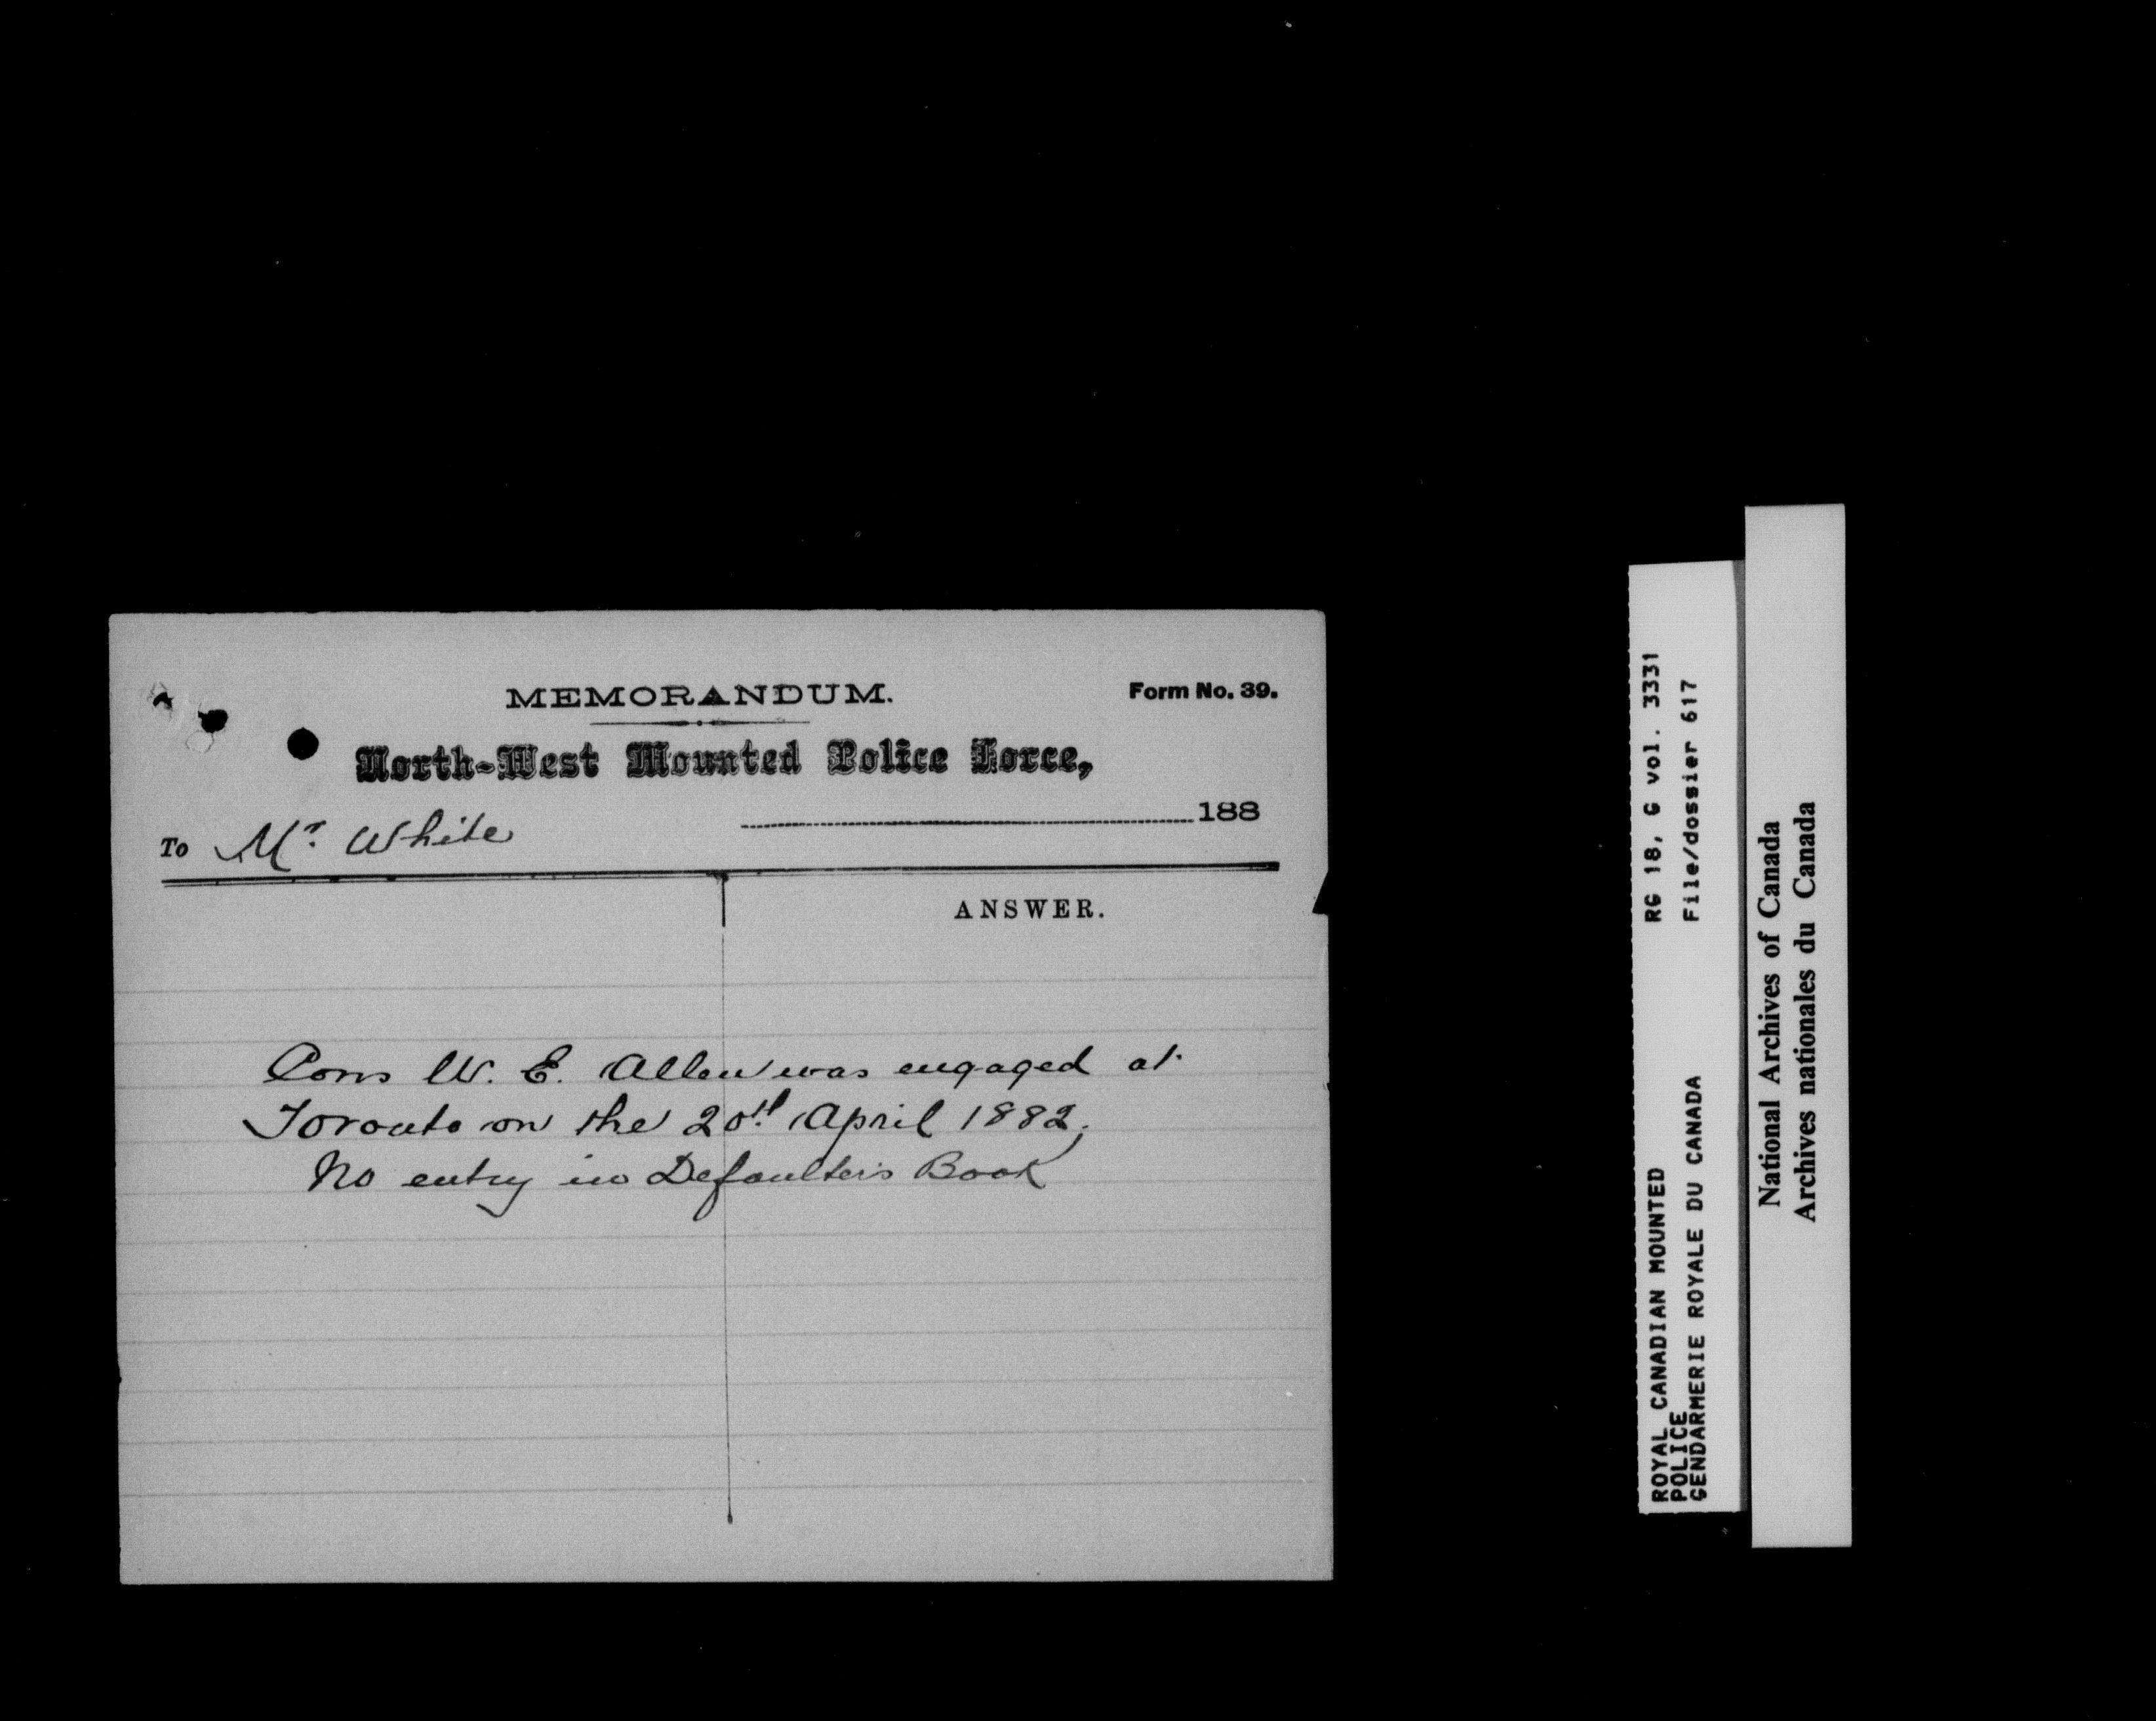 MEMORANDUM.
Form No. 39.
North-West Mounted Police Force,
188
To Mr. White
ANSWER.
Cons W. E. Allen was engaged at
Toronto on the 20th April 1882,
No entry in Defaulters Book
ROYAL CANADIAN MOUNTED
POLICE
GENDARMERIE ROYALE DU CANADA
RG 18, G vol. 3331
File/dossier 617
National Archives of Canada
Archives nationales du Canada